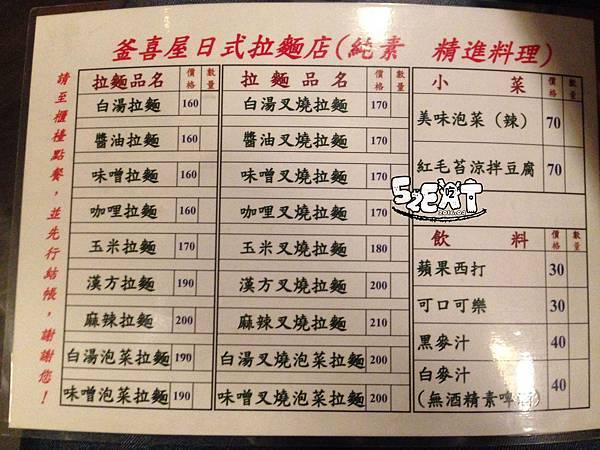 釜喜屋日式拉麵店(純素 精進料理)
請至櫃檯點餐，並先行結帳，謝謝您！
拉麵品名 價格 數量
白湯拉麵 160
醬油拉麵 160
味噌拉麵 160
咖哩拉麵 160
玉米拉麵 170
漢方拉麵 190
麻辣拉麵 200
白湯泡菜拉麵 190
味噌泡菜拉麵 190
拉麵品名 價格 數量
白湯叉燒拉麵 170
醬油叉燒拉麵 170
味噌叉燒拉麵 170
咖哩叉燒拉麵 170
玉米叉燒拉麵 180
漢方叉燒拉麵 200
麻辣叉燒拉麵 210
白湯叉燒泡菜拉麵 200
味噌叉燒泡菜拉麵 200
小菜 價格 數量
美味泡菜（辣） 70
紅毛苔涼拌豆腐 70
飲料 價格 數量
蘋果西打 30
可口可樂 30
黑麥汁 40
白麥汁
(無酒精素啤酒) 40
52EAT